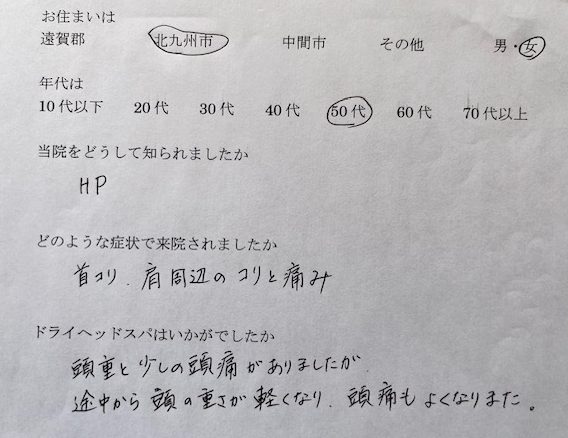 お住まいは
遠賀郡 北九州市 中間市 その他 男・女
年代は
10代以下 20代 30代 40代 50代 60代 70代以上
当院をどうして知られましたか
HP
どのような症状で来院されましたか
首コリ、肩周辺のコリと痛み
ドライヘッドスパはいかがでしたか
頭重と少しの頭痛がありましたが、
途中から頭の重さが軽くなり、頭痛もよくなりまた。